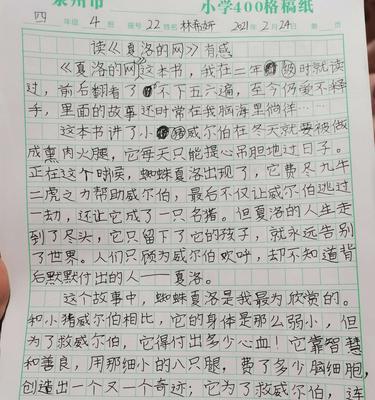 泉州市 小学400格稿纸
四年级 4 班 座号22 姓名 林希妍 2021年2月24日
读《夏洛的网》有感
《夏洛的网》这本书，我在二年级时就读
过，前后翻看了不下五六遍，至今仍爱不释
手，里面的故事还时常在我脑海里徜徉……
这本书讲了小猪威尔伯在冬天就要被做
成熏肉火腿，它每天只能提心吊胆地过日子。
正在这个时候，蜘蛛夏洛出现了，它费尽九牛
二虎之力帮助威尔伯，最后不仅让威尔伯逃过
一劫，还让它成了一只名猪。但夏洛的人生走
到了尽头，它只留下了它的孩子，就永远告别
了世界。人们只顾为威尔伯欢呼，却不知道背
后默默付出的人——夏洛。
这个故事中，蜘蛛夏洛是我最为欣赏的。
和小猪威尔伯相比，它的身体是那么弱小，但
为了救威尔伯，它得付出多少心血！它靠智慧
和善良，用那细小的八只腿，费了多少脑细胞，
创造出一个又一个奇迹；它为了救威尔伯，连